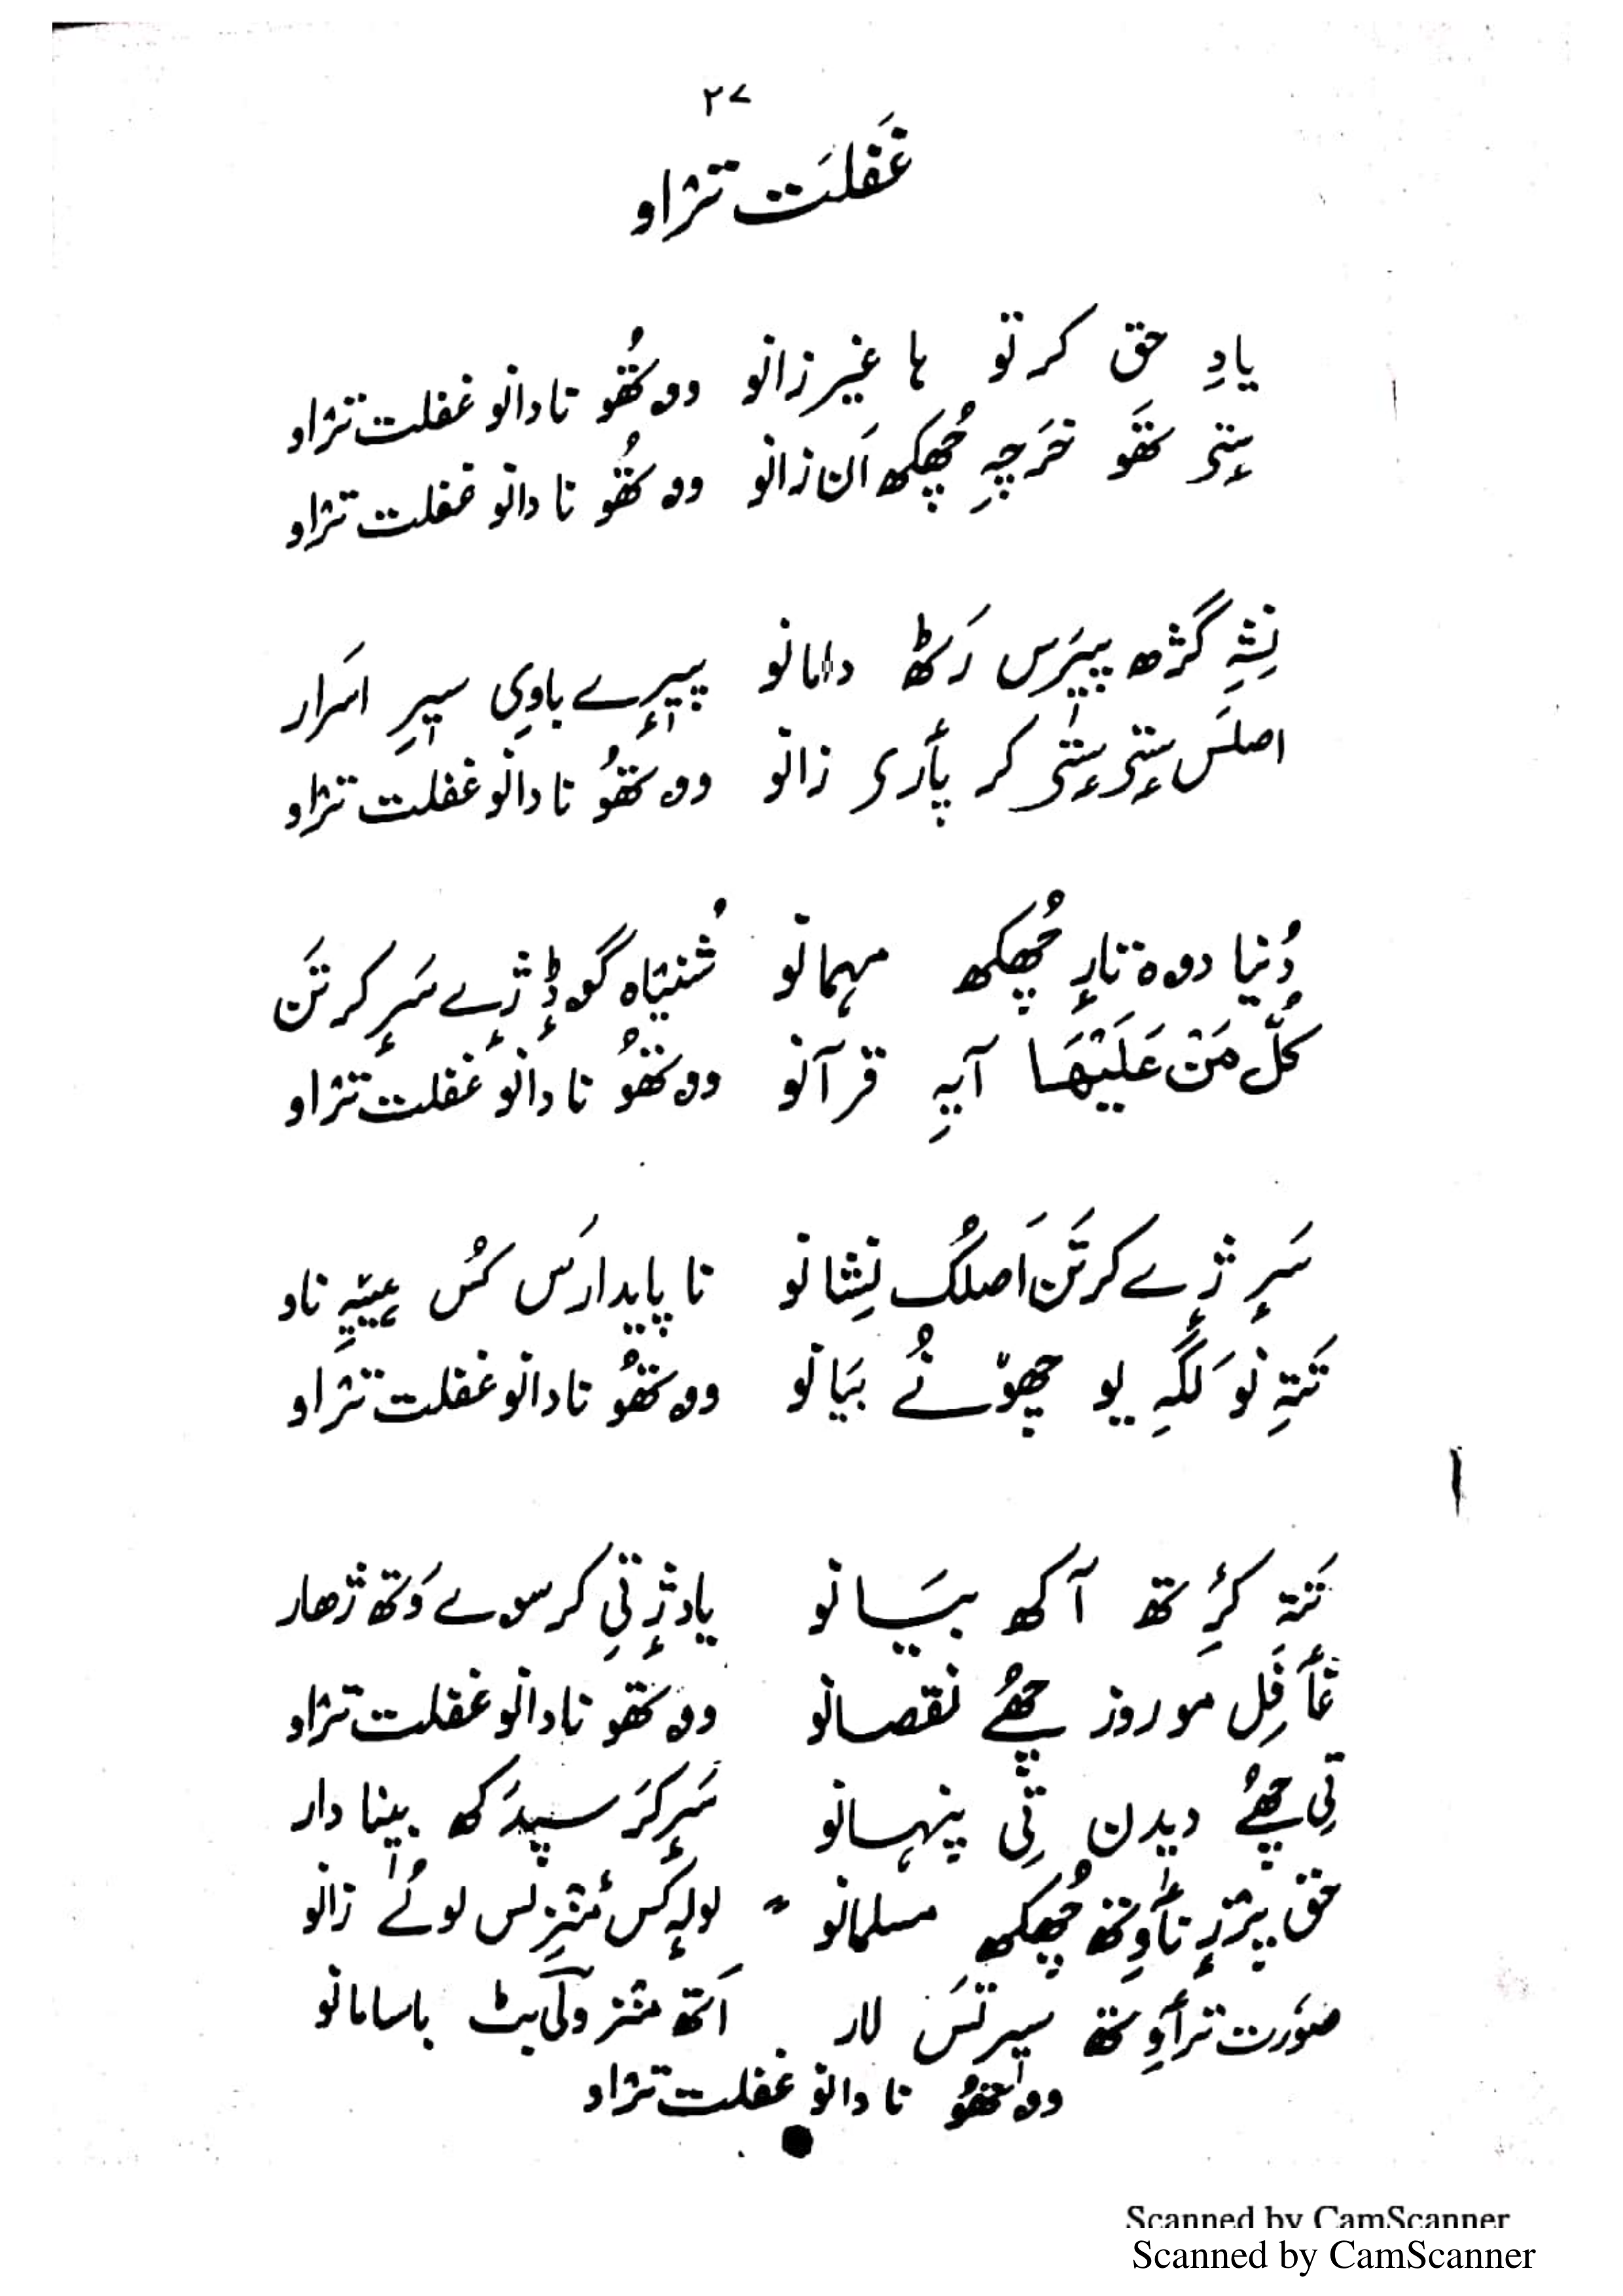 ۲۷
غَفلَت ترٛاو
یادِ حق کرتو ہا غیر زانو وۄں تھٔو نادانو غفلت ترٛاو
سٟتی تھَو خَرَچہِ چُھکھ اَن زانو وۄں تھٔو نادانو غفلت ترٛاو
نِشہِ گژھ پیٖرَس رَٹھ دامانو پیٖرٕے باوِی سِرِ اسَرار
اصلَس سٟتی سٟتی کر پأری زانو وۄں تھٔو نادانو غفلت ترٛاو
دُنیا دۄہ تارٕ چُھکھ مہمانو شُنیٚاہ گوڈٕ ژٕے سَرٕ کرتَن
کُلّ مَنْ عَلَیْھَا آیہِ قرآنو وۄں تھٔو نادانو غفلت ترٛاو
سَرٕ ژٕے کرتَن اَصلُک نِشانو ناپایدارَس کُس عیٚیہِ ناد
تَتہِ نَو لَگہِ یو چھوٚنُے بیَانو وۄں تھٔو نادانو غفلت ترٛاو
تَتہ کرِٛتھ آکھ بیَانو یاد ژٕ تِی کر سوے وَتھ ژھار
غأفِل مو روز چھُے نقصانو وۄں تھٔو نادانو غفلت ترٛاو
تِی چھُے دیدن تِی پنہانو سَرٕ کَر سپدَکھ بینا دار
حق یٚرٛ ژٕ نأوِتھ چُھکھ مسلمانو لولہٕ کس مَنٛزِلس لوگُے زانو
صوٗرت ترٲوِتھ سیرتَس لار اَتھ منٛز ولی بٹ باسامانو
وۄں تھٔو نادانو غفلت ترٛاو
Scanned by CamScanner
Scanned by CamScanner